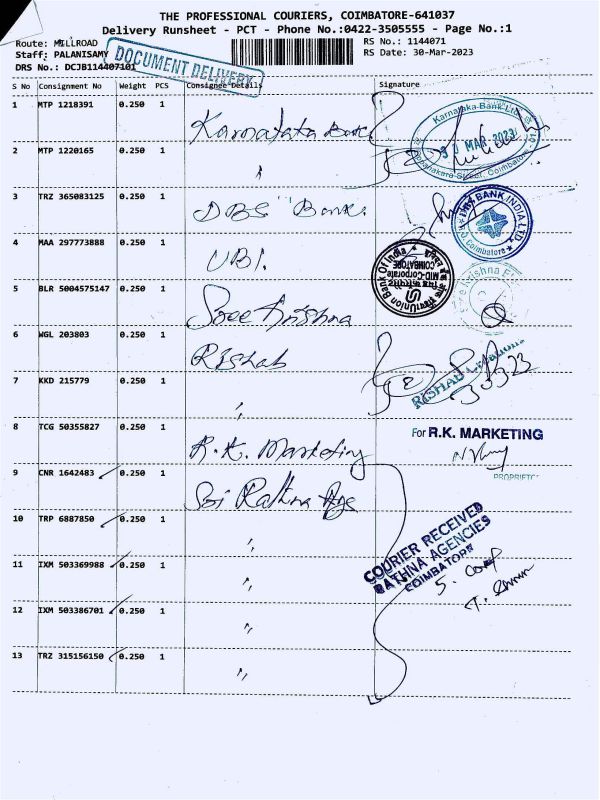 THE PROFESSIONAL COURIERS, COIMBATORE-641037
Delivery Runsheet - PCT - Phone No.:0422-3505555 - Page No.:1
Route: MILLROAD RS No.: 1144071
Staff: PALANISAMY RS Date: 30-Mar-2023
DRS No.: DCJB114407101
DOCUMENT DELIVERY
S No Consignment No Weight PCS Consignee Details Signature
1 MTP 1218391 0.250 1 Karnataka Bank
Karnataka Bank Ltd.
30 MAR 2023
Coimbatore
2 MTP 1220165 0.250 1 "
3 TRZ 365083125 0.250 1 DBS Bank
BANK INDIA LTD
Coimbatore
4 MAA 297773888 0.250 1 UBI.
Union Bank Of India
MID-Corporate
COIMBATORE
5 BLR 5004575147 0.250 1 Sree Krishna
Krishna
6 WGL 203803 0.250 1 Rishab
RISHAB
30323
7 KKD 215779 0.250 1 "
8 TCG 50355827 0.250 1 R.K. Marketing
For R.K. MARKETING
9 CNR 1642483 0.250 1 Sri Rathna Ags
10 TRP 6887850 0.250 1 "
COURIER RECEIVED
RATHNA AGENCIES
COIMBATORE
11 IXM 503369988 0.250 1 "
12 IXM 503386701 0.250 1 "
13 TRZ 315156150 0.250 1 "